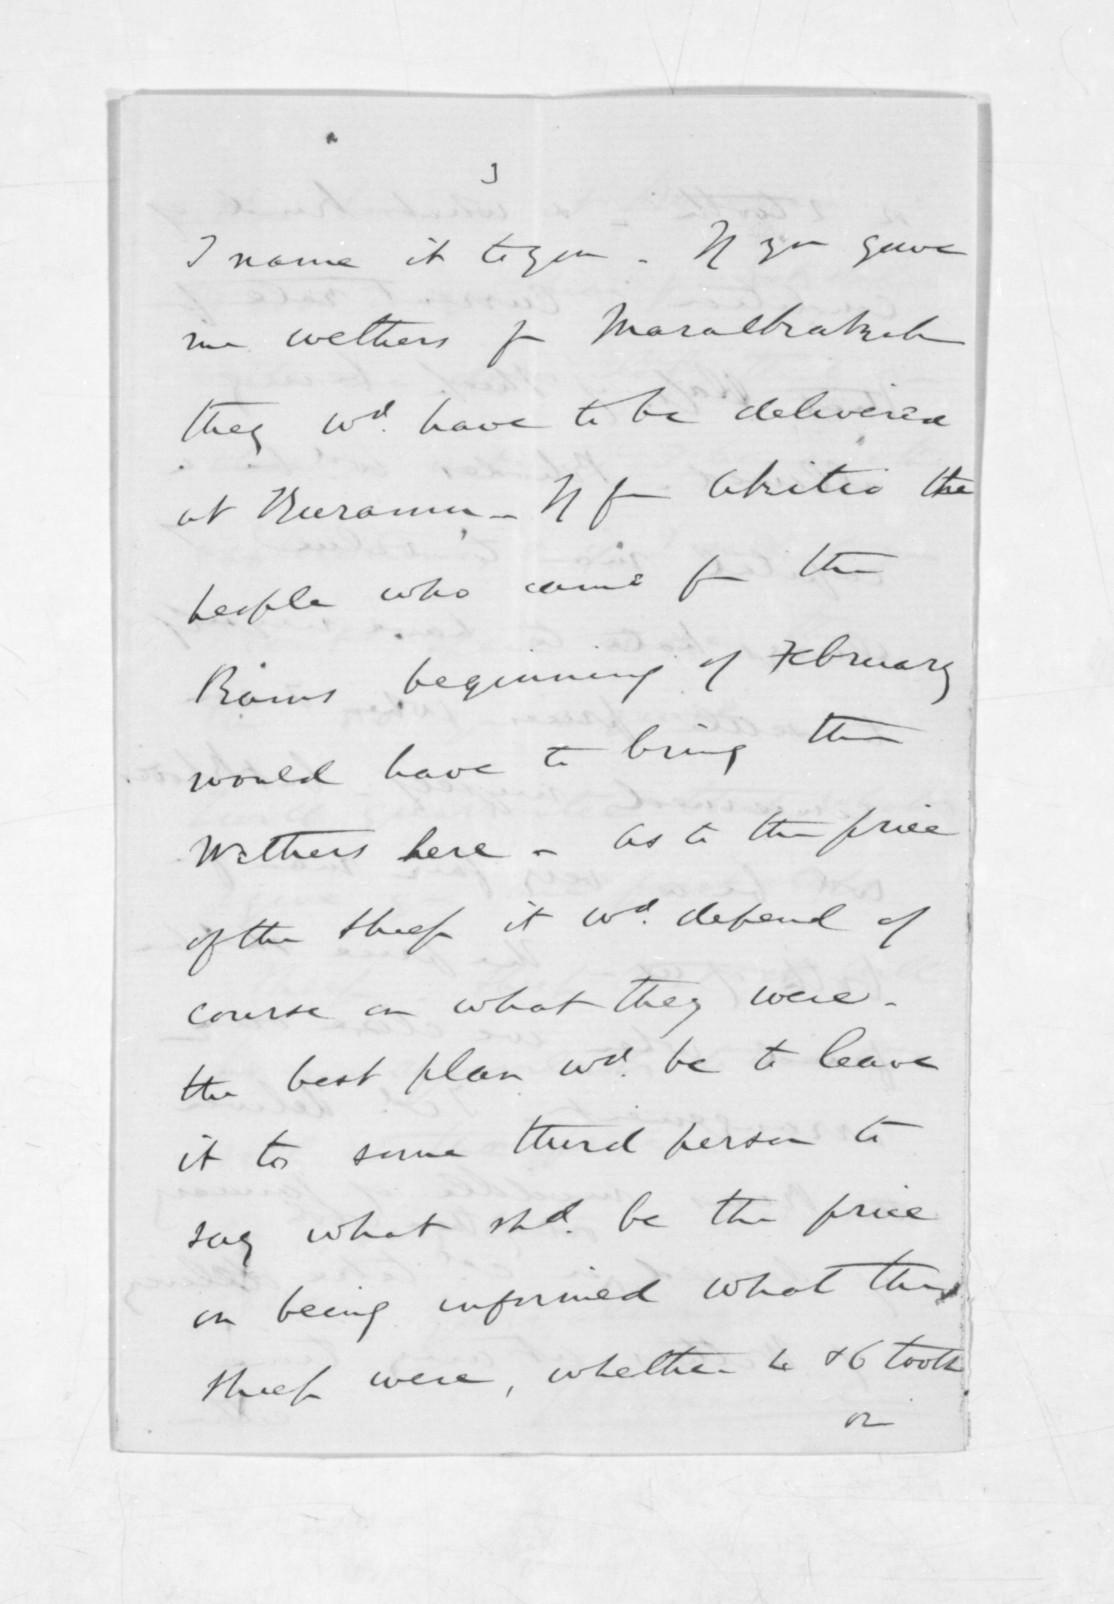 3
I name it to you. If you gave
me wethers for Maraekakaho
they wd. have to be delivered
at - If for Akitio the
people who came for the
Rams beginning of February
would have to bring the
Wethers here - As to the price
of the sheep it wd. depend of
course on what they were -
the best plan wd. be to leave
it to some third person to
say what shd. be the price
on being informed what the
sheep were, whether 4 & 6 tooth
or